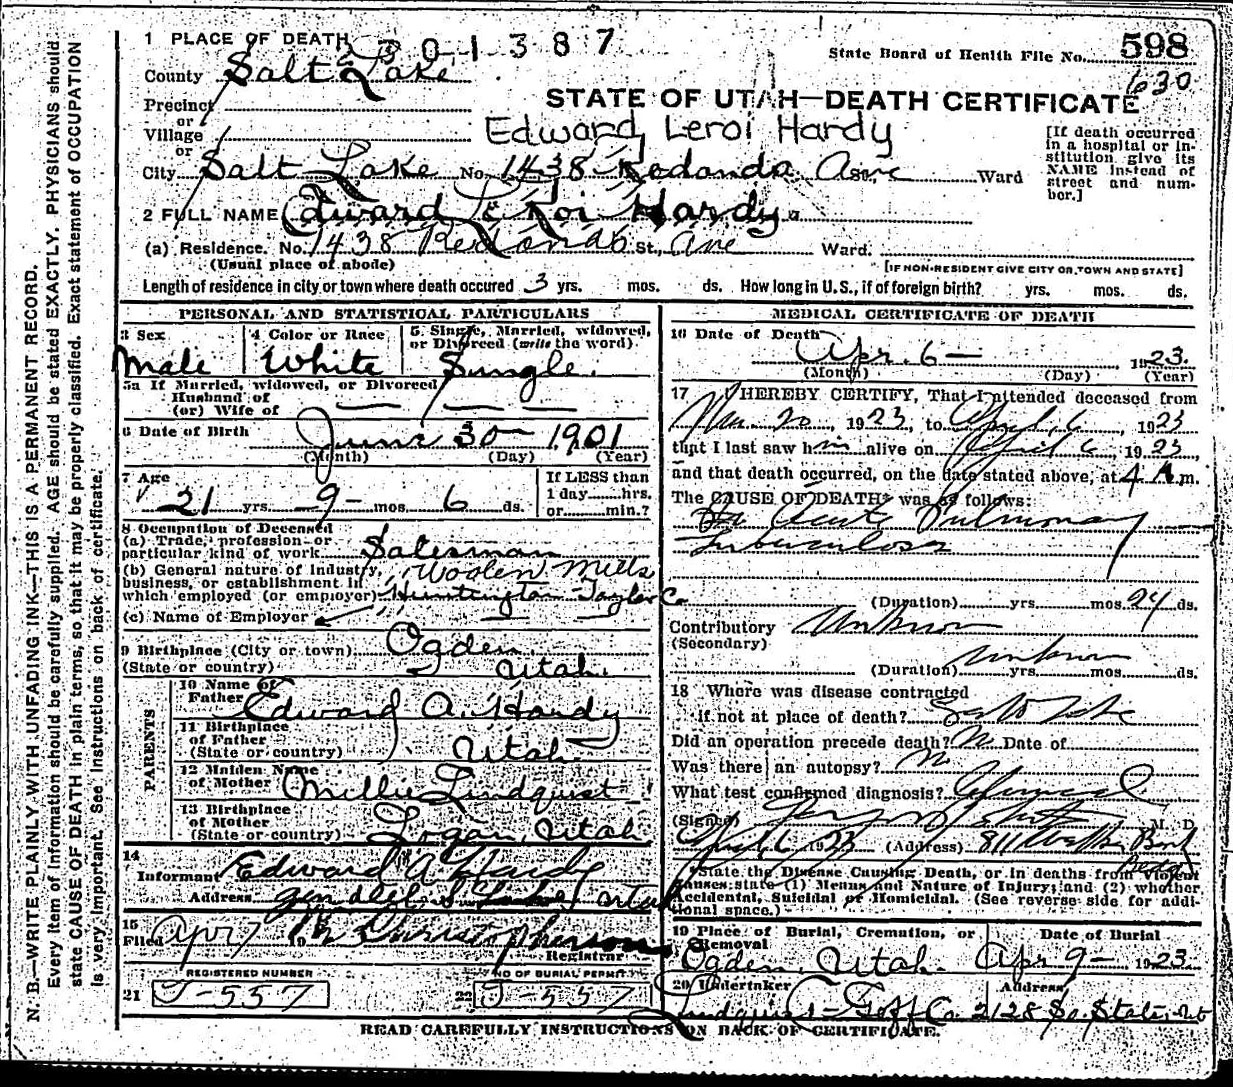 N. B.—WRITE PLAINLY WITH UNFADING INK—THIS IS A PERMANENT RECORD.
Every item of information should be carefully supplied. AGE should be stated EXACTLY. PHYSICIANS should
state CAUSE OF DEATH in plain terms, so that it may be properly classified. Exact statement of OCCUPATION
is very important. See instructions on back of certificate.
1 PLACE OF DEATH
2301387
State Board of Health File No. 598
630
County Salt Lake
STATE OF UTAH—DEATH CERTIFICATE
Precinct
or
Village
or
Edward Leroi Hardy
[If death occurred in a hospital or institution give its NAME instead of street and number.]
City Salt Lake No. 1438 Redondo Ave Ward
2 FULL NAME Edward Le Roi Hardy
(a) Residence. No. 1438 Redondo St., Ave Ward.
(Usual place of abode) [IF NON-RESIDENT GIVE CITY OR TOWN AND STATE]
Length of residence in city or town where death occured 3 yrs. mos. ds. How long in U.S., if of foreign birth? yrs. mos. ds.
PERSONAL AND STATISTICAL PARTICULARS
3 Sex Male
4 Color or Race White
5. Single, Married, widowed, or Divorced (write the word) Single.
5a If Married, widowed, or Divorced
Husband of
(or) Wife of
6 Date of Birth June 30 — 1901
(Month) (Day) (Year)
7 Age 21 yrs. 9 mos. 6 ds.
If LESS than
1 day......hrs.
or......min.?
8 Occupation of Deceased
(a) Trade, profession or
particular kind of work Salesman
(b) General nature of Industry, Woolen Mills
business, or establishment in
which employed (or employer) Huntington Taylor Co
(c) Name of Employer
9 Birthplace (City or town) Ogden
(State or country) Utah.
PARENTS
10 Name of
Father Edward A. Hardy
11 Birthplace
of Father
(State or country) Utah.
12 Maiden Name
of Mother Millie Lindquist
13 Birthplace
of Mother
(State or country) Logan, Utah
14
Informant Edward A. Hardy
Address
15
Filed Apr 7 19
Registrar
REGISTERED NUMBER
21 J-557
NO OF BURIAL PERMIT
22 J-557
MEDICAL CERTIFICATE OF DEATH
16 Date of Death
Apr. 6 — 1923.
(Month) (Day) (Year)
17 I HEREBY CERTIFY, That I attended deceased from
20, 1923, to April 6, 1923
that I last saw him alive on April 6 1923
and that death occurred, on the date stated above, at 4 A.m.
The CAUSE OF DEATH* was as follows:
Acute Pulmonary
Tuberculosis
(Duration) yrs. mos. 24 ds.
Contributory Unknown
(Secondary)
(Duration) unknown yrs. mos. ds.
18 Where was disease contracted
if not at place of death? Salt Lake
Did an operation precede death? No Date of
Was there an autopsy? No
What test confirmed diagnosis? Clinical
(Signed) M. D.
April 6 1923 (Address) 811 Walker Bank
*State the Disease Causing Death, or in deaths from violent
causes state (1) Means and Nature of Injury; and (2) whether
Accidental, Suicidal or Homicidal. (See reverse side for additional space.)
19 Place of Burial, Cremation, or
Removal
Ogden, Utah.
Date of Burial
Apr 9 — 1923.
20 Undertaker
Address
Lindquist-Goff Co. 2128 So. State
READ CAREFULLY INSTRUCTIONS ON BACK OF CERTIFICATE.